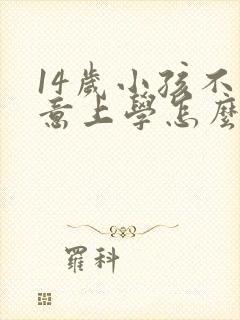 14歲小孩不
意上學怎麼
羅科